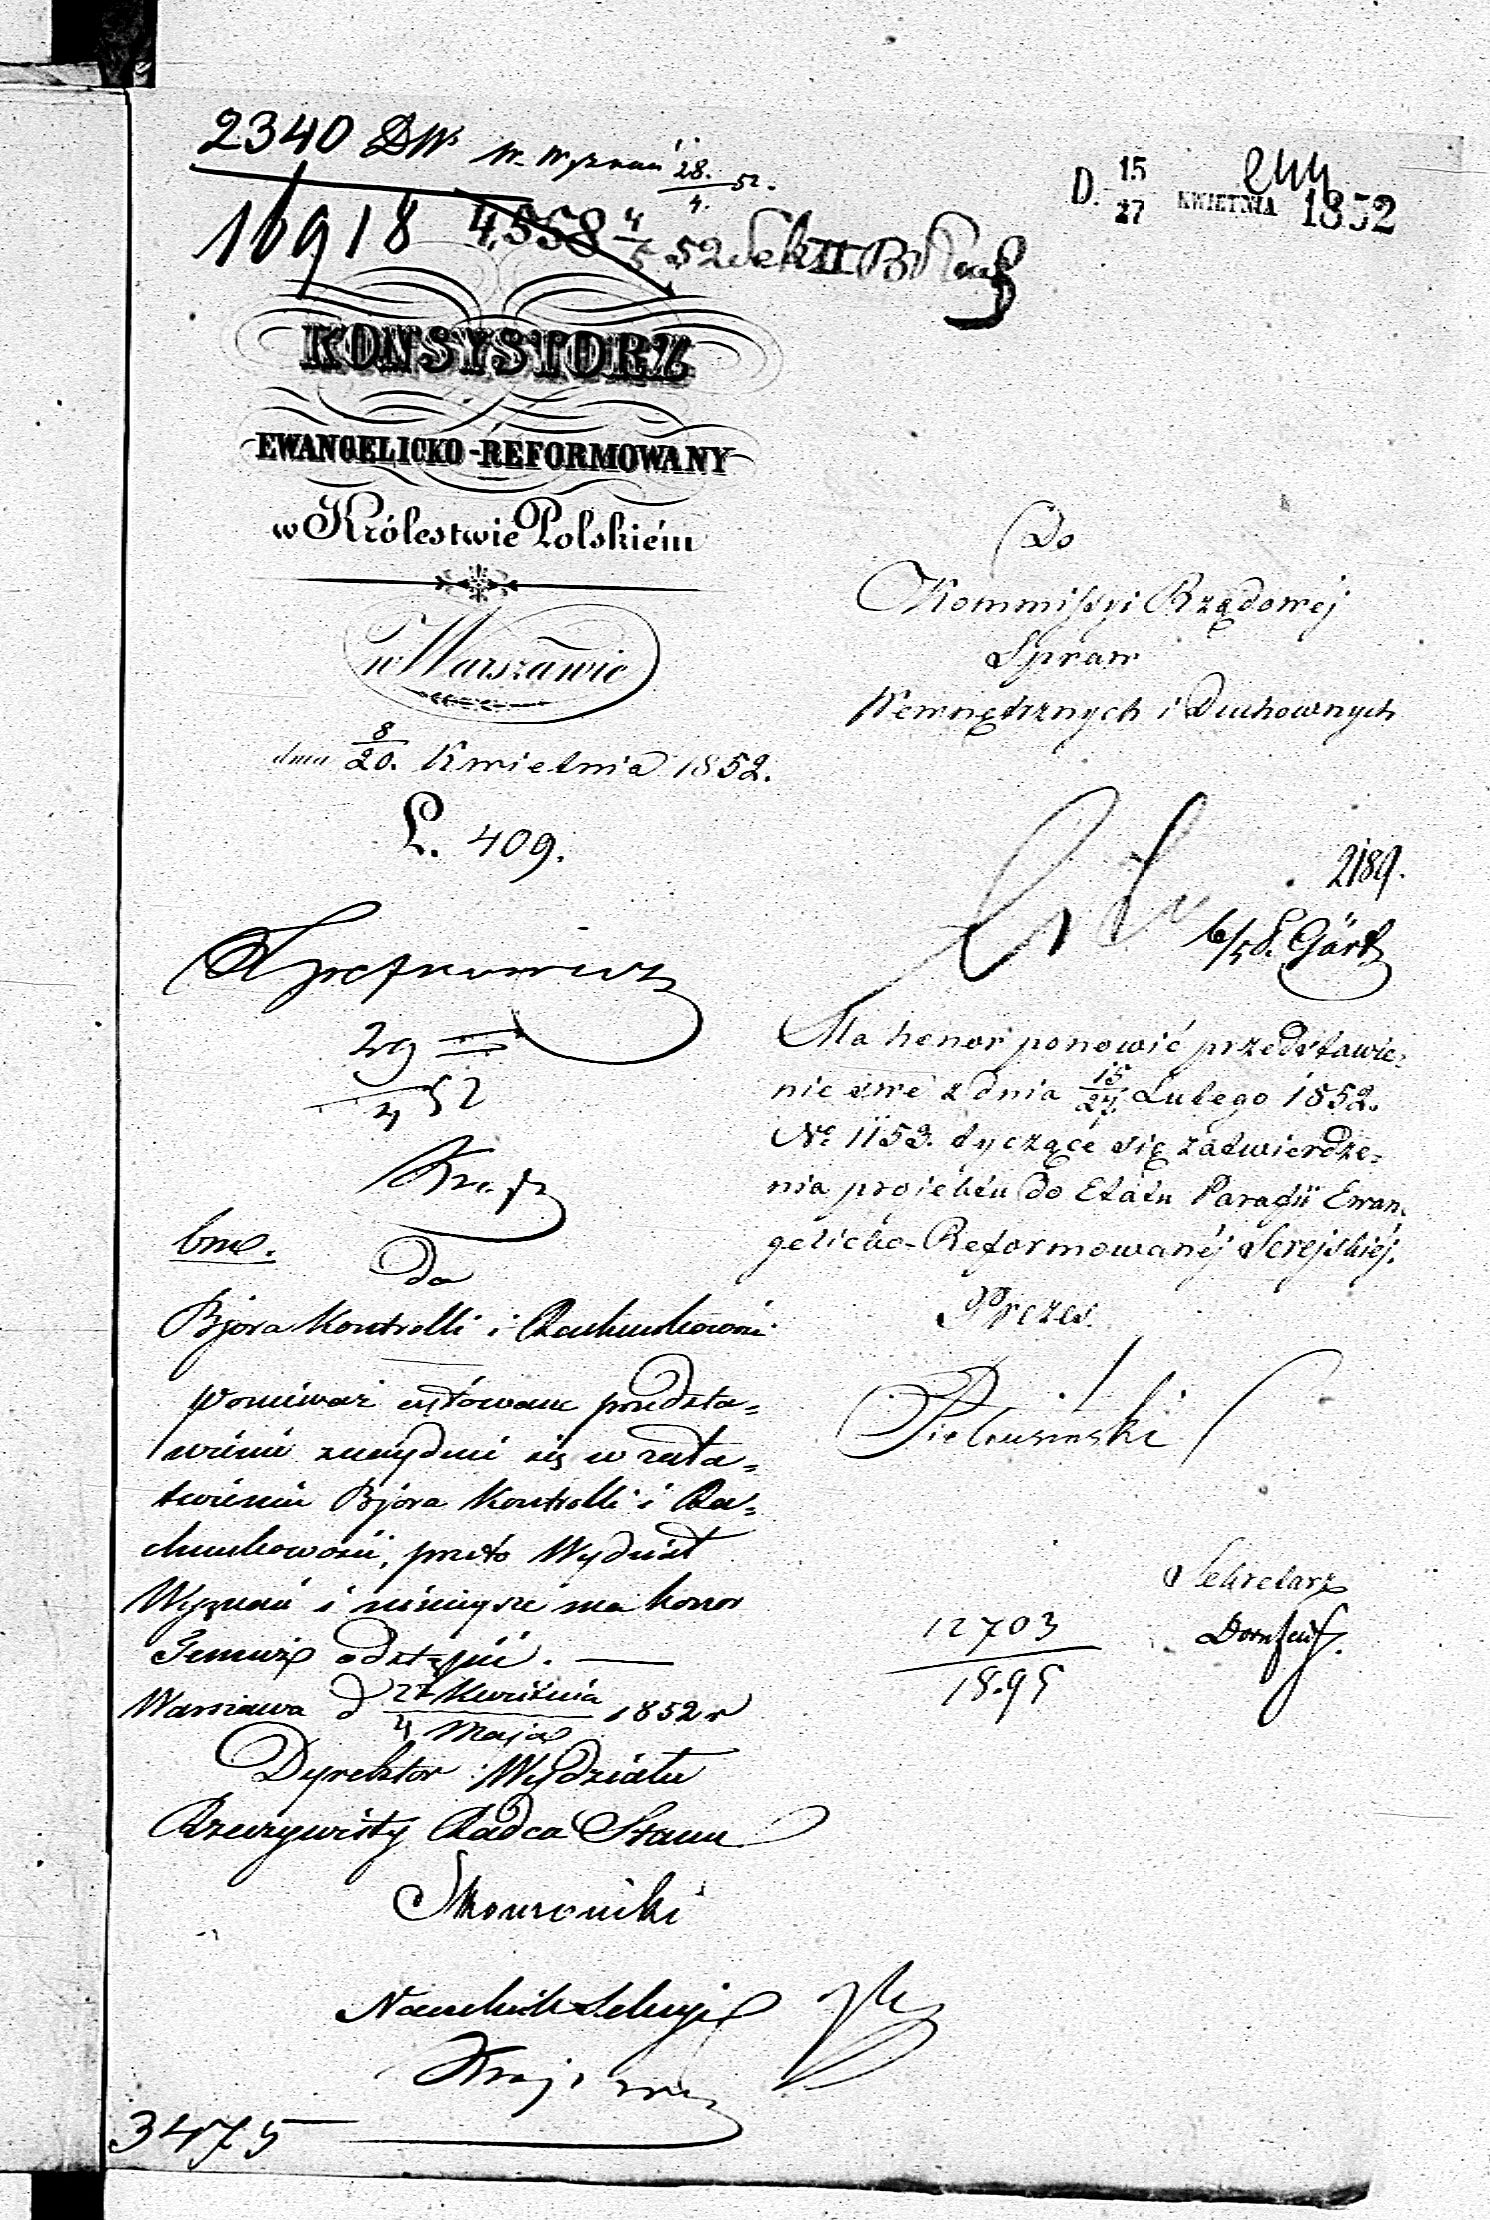 2340 DW. W. Wyznań 28./4. 52.
D. 15/27 KWIETNIA 1852
16918 4,558 4/5 52 Sek II B
KONSYSTORZ
EWANGELICKO-REFORMOWANY
w Królestwie Polskiém
w Warszawie
dnia 8/20. Kwietnia 1852.
L. 409.
Do
Kommissyi Rządowéj
Spraw
Wewnętrznych i Duchownych
2189.
6/5 S. Görtz
29/4 52
Ma honor ponowić przedstawie-
nie swe z dnia 15/27. Lutego 1852.
No 1153. tyczące się zatwierdze-
nia projektu do Etatu Parafii Ewan-
gelicko-Reformowanéj Serejskiéj.
Prezes.
Pietrusiński
Sekretarz
12703
18.95
bme.
Do
Bjóra Kontrolli i Rachunkowości
Ponieważ cytowane przedsta-
wienie znajduie się w zała-
twieniu Bjóra Kontrolli i Ra-
chunkowości, przeto Wydział
Wyznań i niniejsze ma honor
Temuż odstąpić. —
Warszawa d 22 Kwietnia/4 Maja 1852 r
Dyrektor Wydziału
Rzeczywisty Radca Stanu
Skowroński
Naczelnik Sekcyi
3475